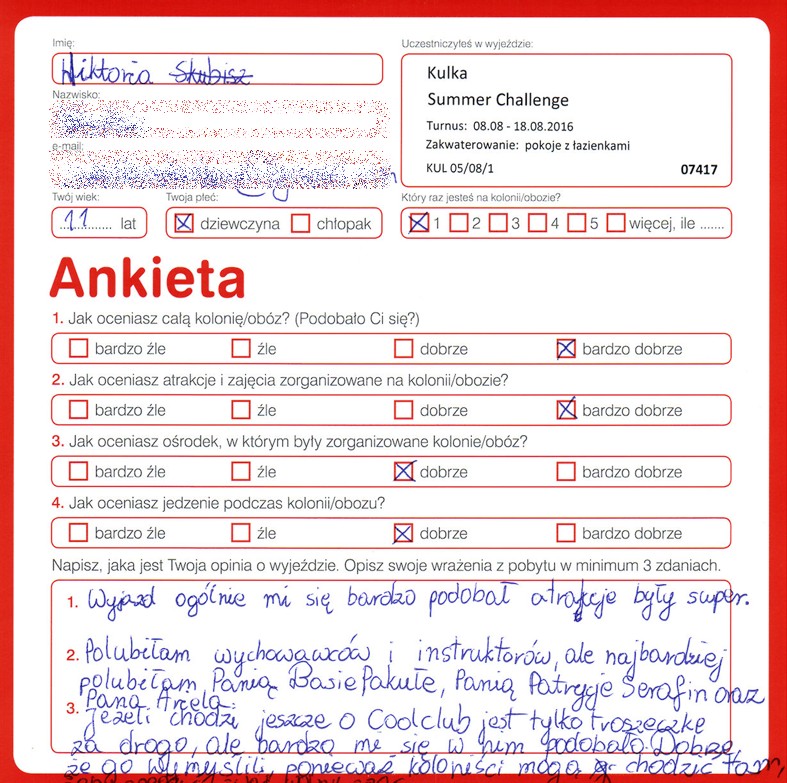 Imię:
Wiktoria Skubisz
Nazwisko:
e-mail:
Twój wiek:
11 lat
Twoja płeć:
dziewczyna chłopak
Uczestniczyłeś w wyjeździe:
Kulka
Summer Challenge
Turnus: 08.08 - 18.08.2016
Zakwaterowanie: pokoje z łazienkami
KUL 05/08/1 07417
Który raz jesteś na kolonii/obozie?
1 2 3 4 5 więcej, ile .......
Ankieta
1. Jak oceniasz całą kolonię/obóz? (Podobało Ci się?)
bardzo źle źle dobrze bardzo dobrze
2. Jak oceniasz atrakcje i zajęcia zorganizowane na kolonii/obozie?
bardzo źle źle dobrze bardzo dobrze
3. Jak oceniasz ośrodek, w którym były zorganizowane kolonie/obóz?
bardzo źle źle dobrze bardzo dobrze
4. Jak oceniasz jedzenie podczas kolonii/obozu?
bardzo źle źle dobrze bardzo dobrze
Napisz, jaka jest Twoja opinia o wyjeździe. Opisz swoje wrażenia z pobytu w minimum 3 zdaniach.
1. Wyjazd ogólnie mi się bardzo podobał atrakcje były super.
2. Polubiłam wychowawców i instruktorów, ale najbardziej
polubiłam Panią Basie Pakułe, Panią Patrycje Serafin oraz
Pana Arcela.
3. Jeżeli chodzi jeszcze o Coolclub jest tylko troszeczkę
za drogo, ale bardzo mi się w nim podobało. Dobrze,
że go wymyślili ponieważ koloniści mogą chodzić tam,